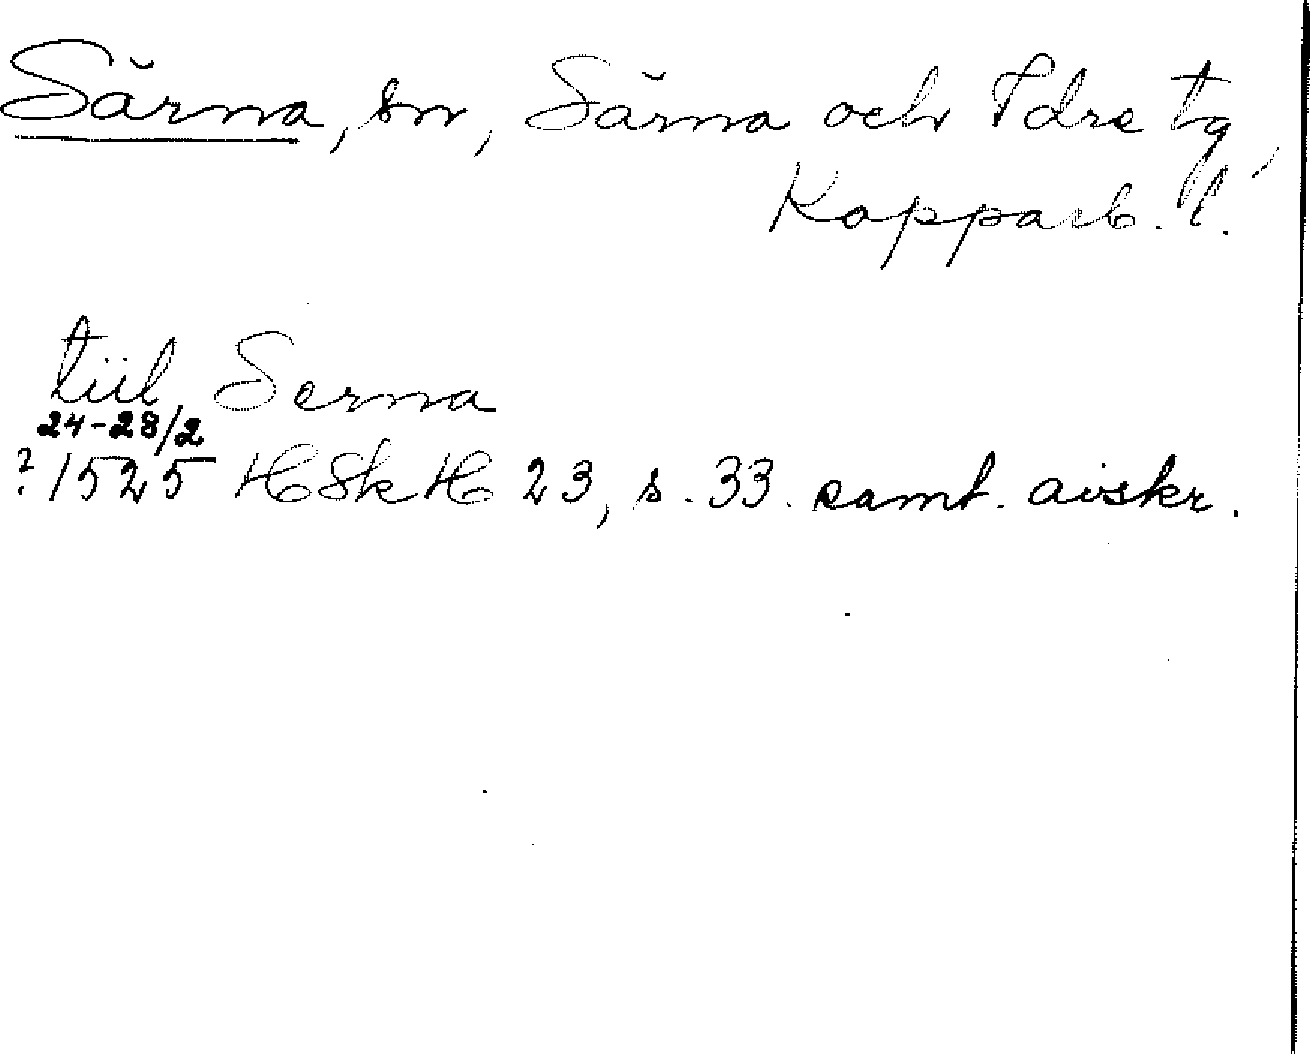 Särna, sn, Särna och Idre tg,
Kopparb. l.
tiil Serna
24-28/2
? 1525 HSkH 23, s. 33. samt. avskr.